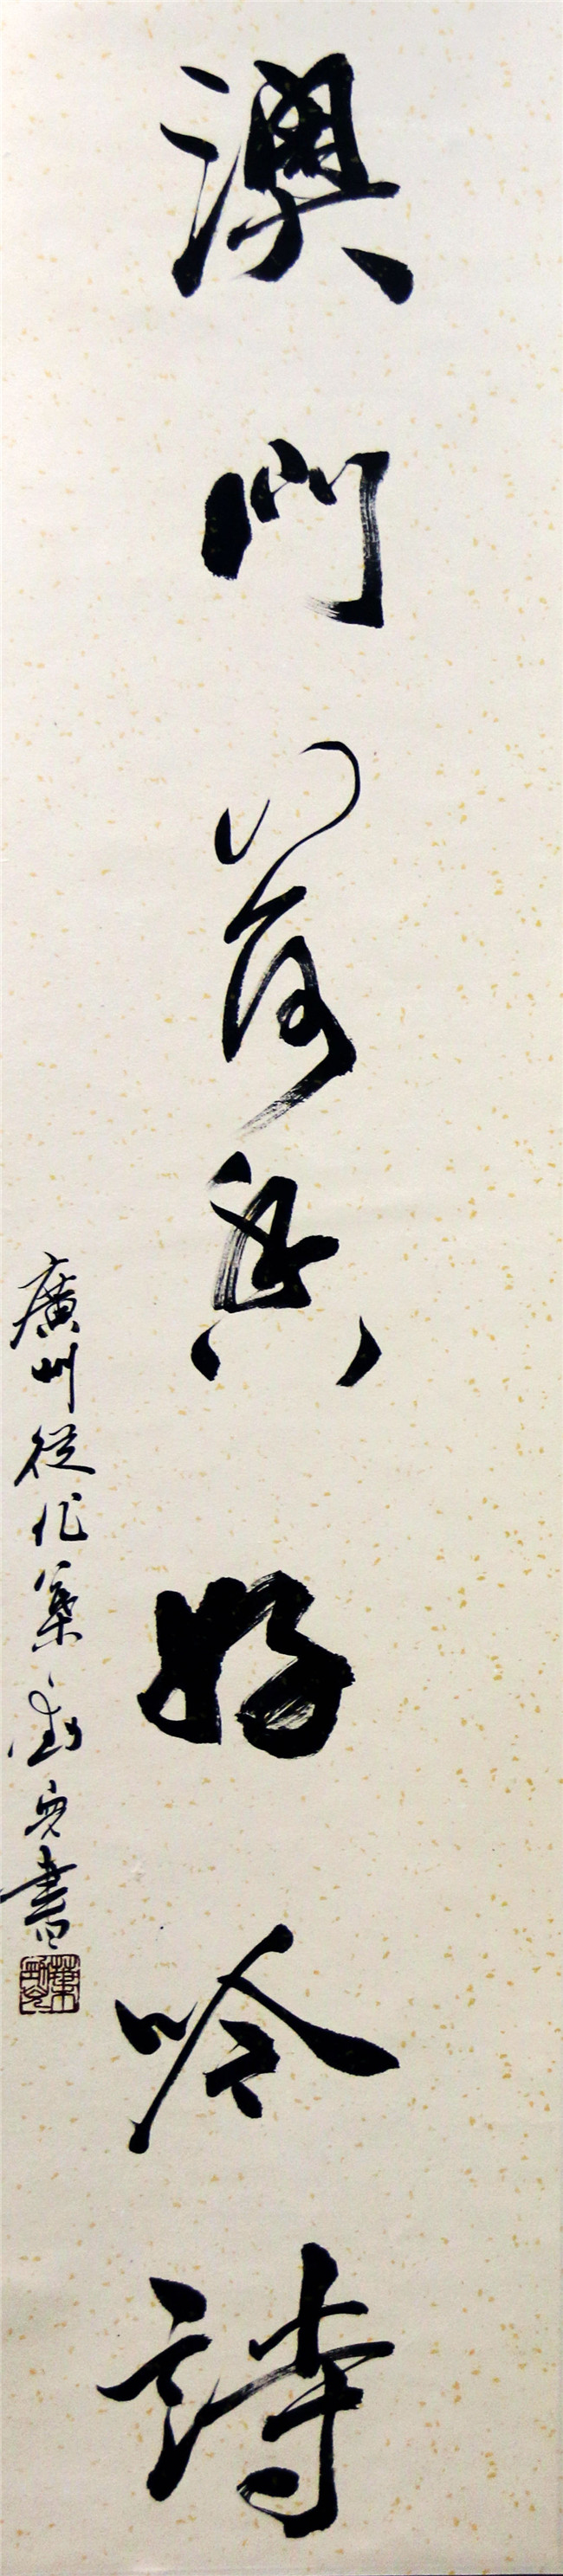 澳門興好吟詩
廣州從化葉書